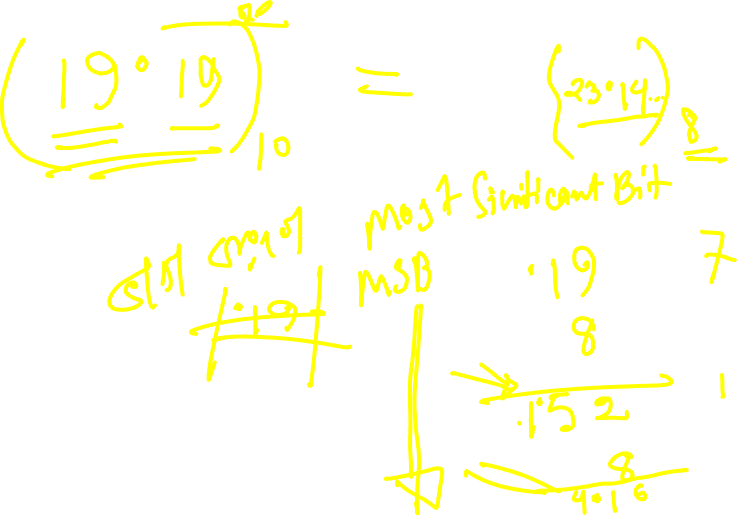 (19.19)10 = (23.14...)8
Most Significant Bit
MSB
.19
7
.19
8
1.52
1
8
4.16